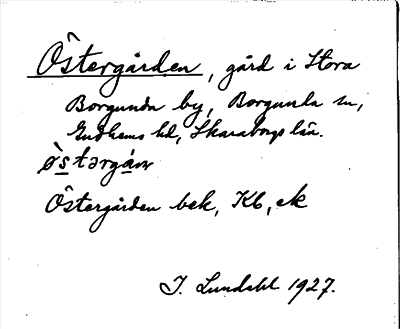 Östergården, gård i Stora
Borgunda by, Borgunda sn,
Gudhems hd, Skaraborgs län.
Östergården bek, Kb, ek
I. Lundahl 1927.